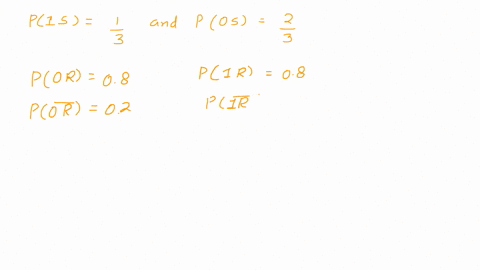 P(1S) = 1/3 and P(0S) = 2/3
P(0R) = 0.8 P(1R) = 0.8
P(0R̅) = 0.2 P(1R̅